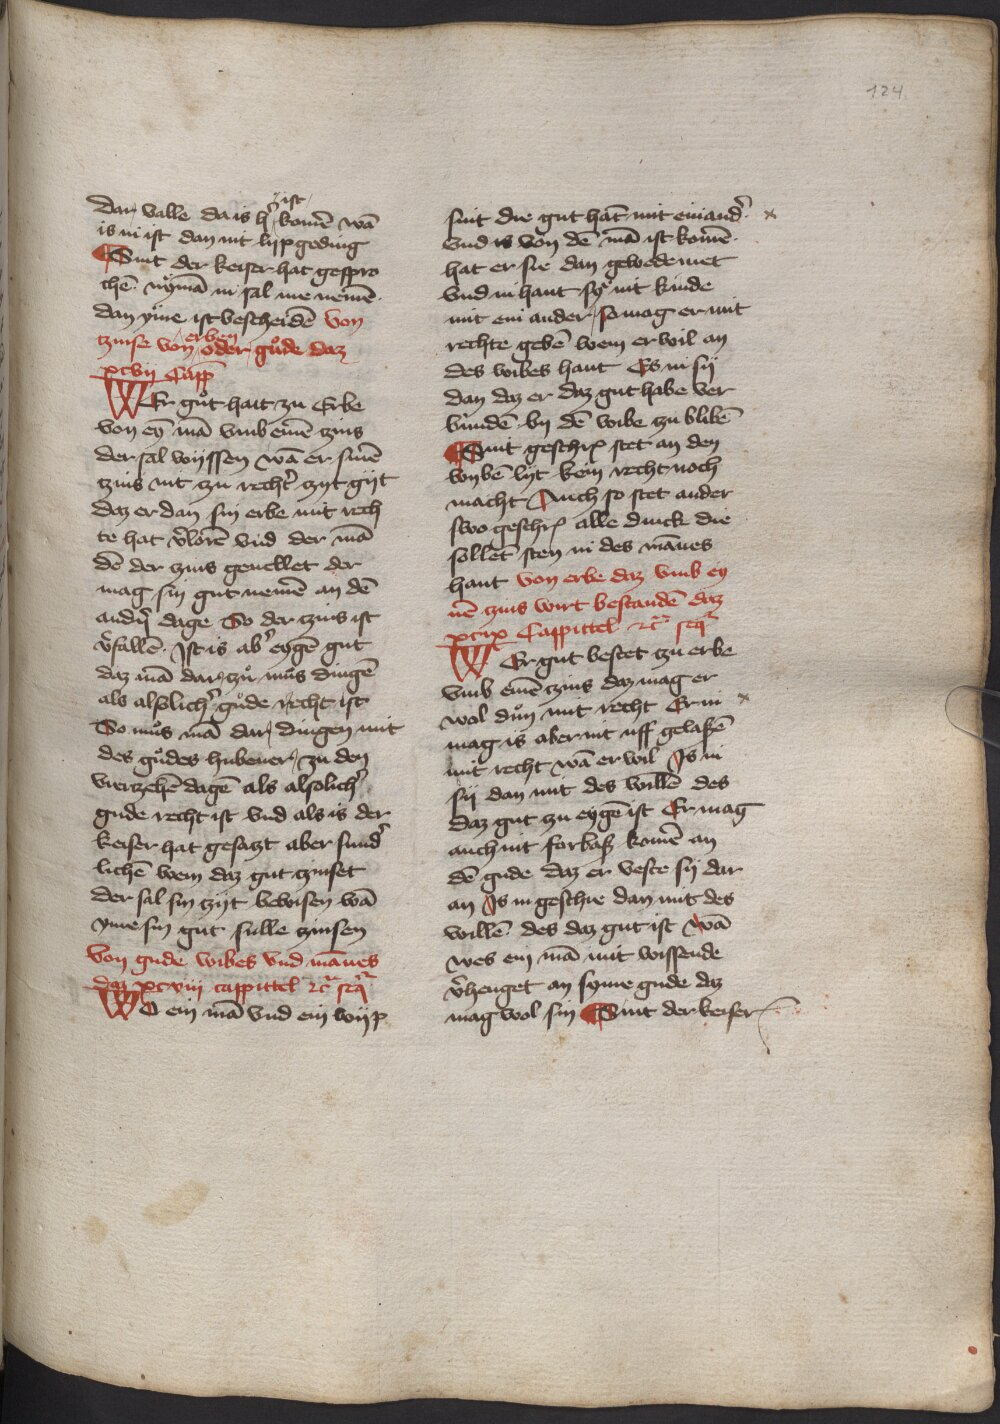 124
dar valle da is h̓ ist komē wā
is ni ist dan nit lyp geding
Sint der keiser hat gespro
chē nÿmā in sal me nemē
dan yme ist bescheidē von
zinse von erben oder gůde daz
xcvij Capp̄
WEr gůt hait zu Erbe
von eȳ mā vmb einē zins
der sal wyssen wā er sinē
zins nit zu recht̓ zyt gyt
daz er dan sin erbe mit rech
te hat v̓lorē vnd der mā
dē der zins geuellet der
mag sin gut nemē an dē
andn̓ dage So der zins ist
v̓fallē Ist is ab̓ eygē gut
daz mā dar zů můs dingē
als alsolich̓ gůde recht ist
So můs mā dar dingen mit
des gůdes hubener zu den
vierzehē dagē als alsolich̓
gude recht ist vnd als is der
keiser hat gesatzt aber sund̓
lichē wem daz gut zinset
der sal sin zyt bewisen wā
yme sin gut sulle zinsen
Von gude wibes vnd mānes
daz xcviij cappittel ꝛc̄ seq̄
WO ein mā vnd ein wyp
sint die gut hāt mit einand̓
vnd is von dē mā ist komē
hat er sie dan gewedemet
vnd in hant sy nit kinde
mit ein ander so mag er mit
rechte gebē wem er wil an
des wibes hant Es in sy
dan daz er daz gut habe ver
bundē by dē wibe zu blibē
Sint geschrꝭ stet an den
wybē lyt kein recht noch
macht Auch so stet ander
swo geschrꝭ alle dinck die
sollēt sten in des mānes
hant von erbe daz vmb ey
nē zins wirt bestandē daz
xcix Cappittel ꝛc̄ seq̄
WEr gut bestet zu erbe
vmb einē zins daz mag er
wol důn mit recht Er in
mag is aber nit uff gelaßē
mit recht wā er wil Is in
sy dan mit des willē des
daz gut zu eygē ist Er mag
auch nit forbaß komē an
dē gude daz er veste sy dar
an Is in geschie dan mit des
willē des daz gut ist wā
wes ein mā mit wissende
v̓henget an syme gude daz
mag wol sin Sint der keiser